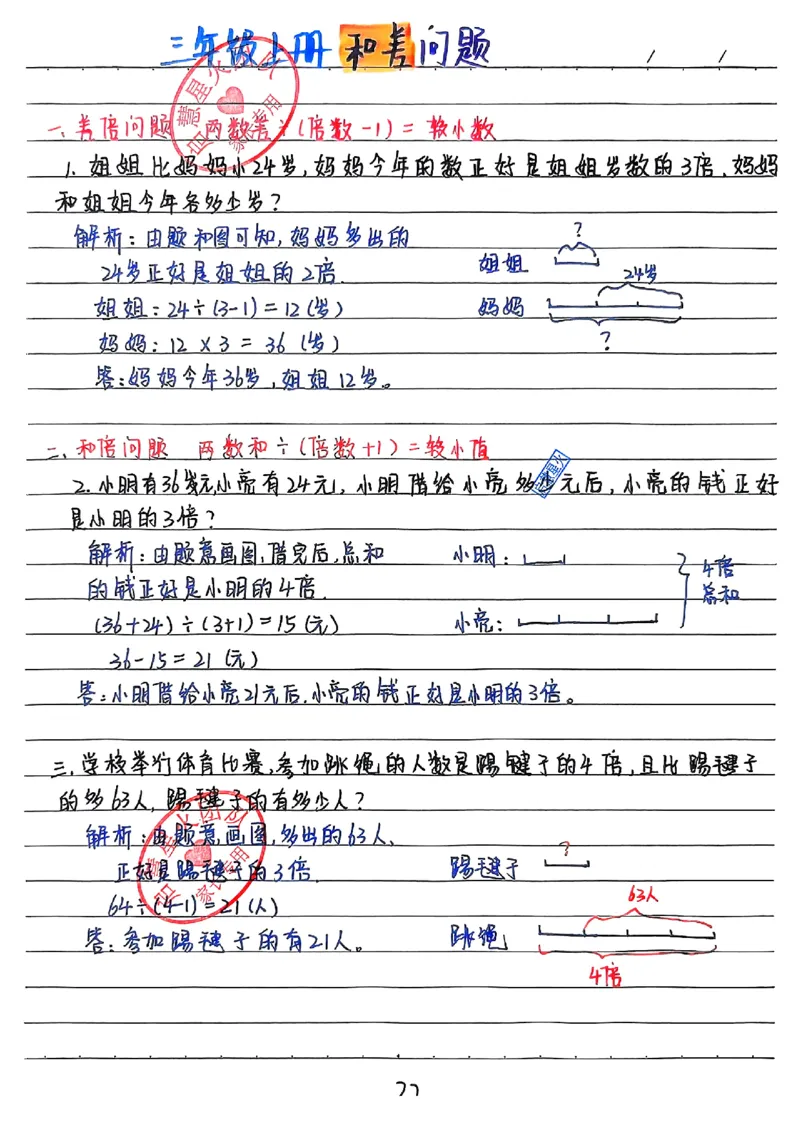 三年级上册 和差问题
一、差倍问题 两数差÷(倍数-1)=较小数
1. 姐姐比妈妈小24岁,妈妈今年的数正好是姐姐岁数的3倍,妈妈
和姐姐今年各多少岁?
解析:由题和图可知,妈妈多出的
24岁正好是姐姐的2倍.
姐姐:24÷(3-1)=12(岁)
妈妈:12×3=36(岁)
答:妈妈今年36岁,姐姐12岁。
?
姐姐
24岁
妈妈
?
二、和倍问题 两数和÷(倍数+1)=较小值
2.小明有36元,小亮有24元,小明借给小亮多少元后,小亮的钱正好
是小明的3倍?
解析:由题意画图,借完后,总和
的钱正好是小明的4倍.
(36+24)÷(3+1)=15(元)
36-15=21(元)
答:小明借给小亮21元后,小亮的钱正好是小明的3倍。
小明:
小亮:
4倍
总和
三,学校举行体育比赛,参加跳绳的人数是踢毽子的4倍,且比踢毽子
的多63人,踢毽子的有多少人?
解析:由题意画图,多出的63人,
正好是踢毽子的3倍.
64÷(4-1)=21(人)
答:参加踢毽子的有21人。
?
踢毽子
63人
跳绳
4倍